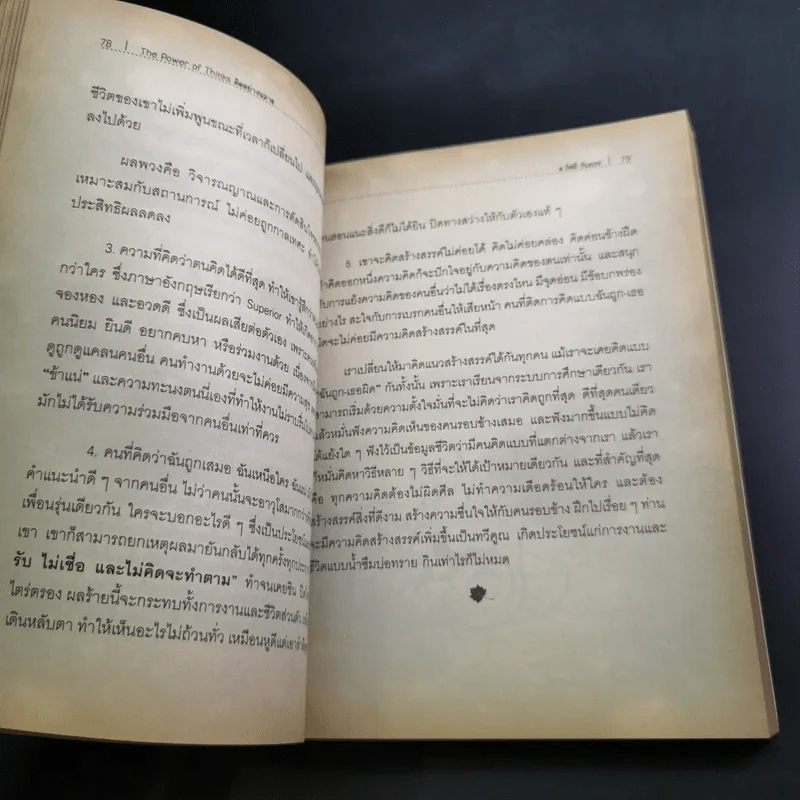 78 | The Power of Thinks คิดอย่างฉลาด
ชีวิตของเขาไม่เพิ่มพูนขณะที่เวลาก็เปลี่ยนไป
ลงไปด้วย
ผลพวงคือ วิจารณญาณและการตัดสินใจ
เหมาะสมกับสถานการณ์ ไม่ค่อยถูกกาลเทศะ
ประสิทธิผลลดลง
3. ความที่คิดว่าตนคิดได้ดีที่สุด ทำให้เขารู้สึกว่า
กว่าใคร ซึ่งภาษาอังกฤษเรียกว่า Superior ทำให้
จองหอง และอวดดี ซึ่งเป็นผลเสียต่อตัวเอง เพราะ
คนนิยม ยินดี อยากคบหา หรือร่วมงานด้วย เนื่องจาก
ดูถูกดูแคลนคนอื่น คนทำงานด้วยจะไม่ค่อยมีความสุข
“ข้าแน่” และความทะนงตนนี้เองที่ทำให้งานไม่ราบรื่น
มักไม่ได้รับความร่วมมือจากคนอื่นเท่าที่ควร
4. คนที่คิดว่าฉันถูกเสมอ ฉันเหนือใคร ฉันแน่
คำแนะนำดี ๆ จากคนอื่น ไม่ว่าคนนั้นจะอาวุโสมากกว่า
เพื่อนรุ่นเดียวกัน ใครจะบอกอะไรดี ๆ ซึ่งเป็นประโยชน์
เขา เขาก็สามารถยกเหตุผลมายันกลับได้ทุกครั้งทุกประการ
รับ ไม่เชื่อ และไม่คิดจะทำตาม” ทำจนเคยชิน
ไตร่ตรอง ผลร้ายนี้จะกระทบทั้งการงานและชีวิตส่วนตัว
เดินหลับตา ทำให้เห็นอะไรไม่ถ้วนทั่ว เหมือนหูดีแต่เอา
79
นสอนแนะสิ่งดีก็ไม่ได้ยิน ปิดทางสว่างให้กับตัวเองแท้ ๆ
5. เขาจะคิดสร้างสรรค์ไม่ค่อยได้ คิดไม่ค่อยคล่อง คิดค่อนข้างฝืด
าคิดออกหนึ่งความคิดก็จะปักใจอยู่กับความคิดของตนเท่านั้น และสนุก
กับการแย้งความคิดของคนอื่นว่าไม่ได้เรื่องตรงไหน มีจุดอ่อน มีข้อบกพร่อง
อย่างไร สะใจกับการเบรกคนอื่นให้เสียหน้า คนที่ติดการคิดแบบฉันถูก-เธอ
ผิดจะไม่ค่อยมีความคิดสร้างสรรค์ในที่สุด
เราเปลี่ยนให้มาคิดแนวสร้างสรรค์ได้กันทุกคน แม้เราจะเคยคิดแบบ
“ฉันถูก-เธอผิด” กันทั้งนั้น เพราะเราเรียนจากระบบการศึกษาเดียวกัน เรา
สามารถเริ่มด้วยความตั้งใจมั่นที่จะไม่คิดว่าเราคิดถูกที่สุด ดีที่สุดคนเดียว
แล้วหมั่นฟังความคิดเห็นของคนรอบข้างเสมอ และฟังมากขึ้นแบบไม่คิด
โต้แย้งใด ๆ ฟังไว้เป็นข้อมูลชีวิตว่ามีคนคิดแบบที่แตกต่างจากเรา แล้วเรา
ก็หมั่นคิดหาวิธีหลาย ๆ วิธีที่จะให้ได้เป้าหมายเดียวกัน และที่สำคัญที่สุด
คือ ทุกความคิดต้องไม่ผิดศีล ไม่ทำความเดือดร้อนให้ใคร และต้อง
สร้างสรรค์สิ่งที่ดีงาม สร้างความชื่นใจให้กับคนรอบข้าง ฝึกไปเรื่อย ๆ ท่าน
จะมีความคิดสร้างสรรค์เพิ่มขึ้นเป็นทวีคูณ เกิดประโยชน์แก่การงานและ
ชีวิตแบบน้ำซึมบ่อทราย กินเท่าไรก็ไม่หมด